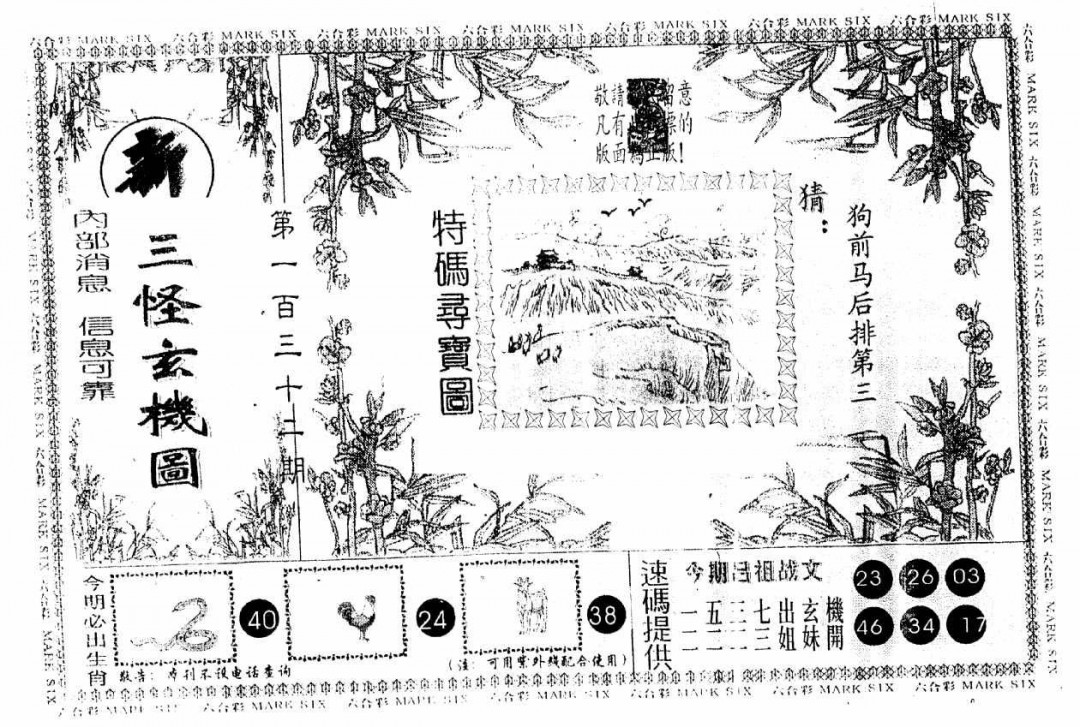 六合彩 MARK SIX 六合彩 MARK SIX 六合彩 MARK SIX 六合彩 MARK SIX 六合彩 MARK SIX 六合彩 MARK SIX 六合彩 MARK SIX
新
三怪玄機圖
內部消息 信息可靠
第一百三十二期
敬請 留意
凡有 的
版面為正版!
特碼尋寶圖
猜:
狗前马后排第三
今明必出生肖
40
24
38
敬告: 本刊不设电话查询
(注: 可用紫外线配合使用)
速碼提供
今期吕祖战文
一五三七出玄機
一二二三姐妹開
23 26 03
46 34 17
六合彩 MARK SIX 六合彩 MARK SIX 六合彩 MARK SIX 六合彩 MARK SIX 六合彩 MARK SIX 六合彩 MARK SIX 六合彩 MARK SIX